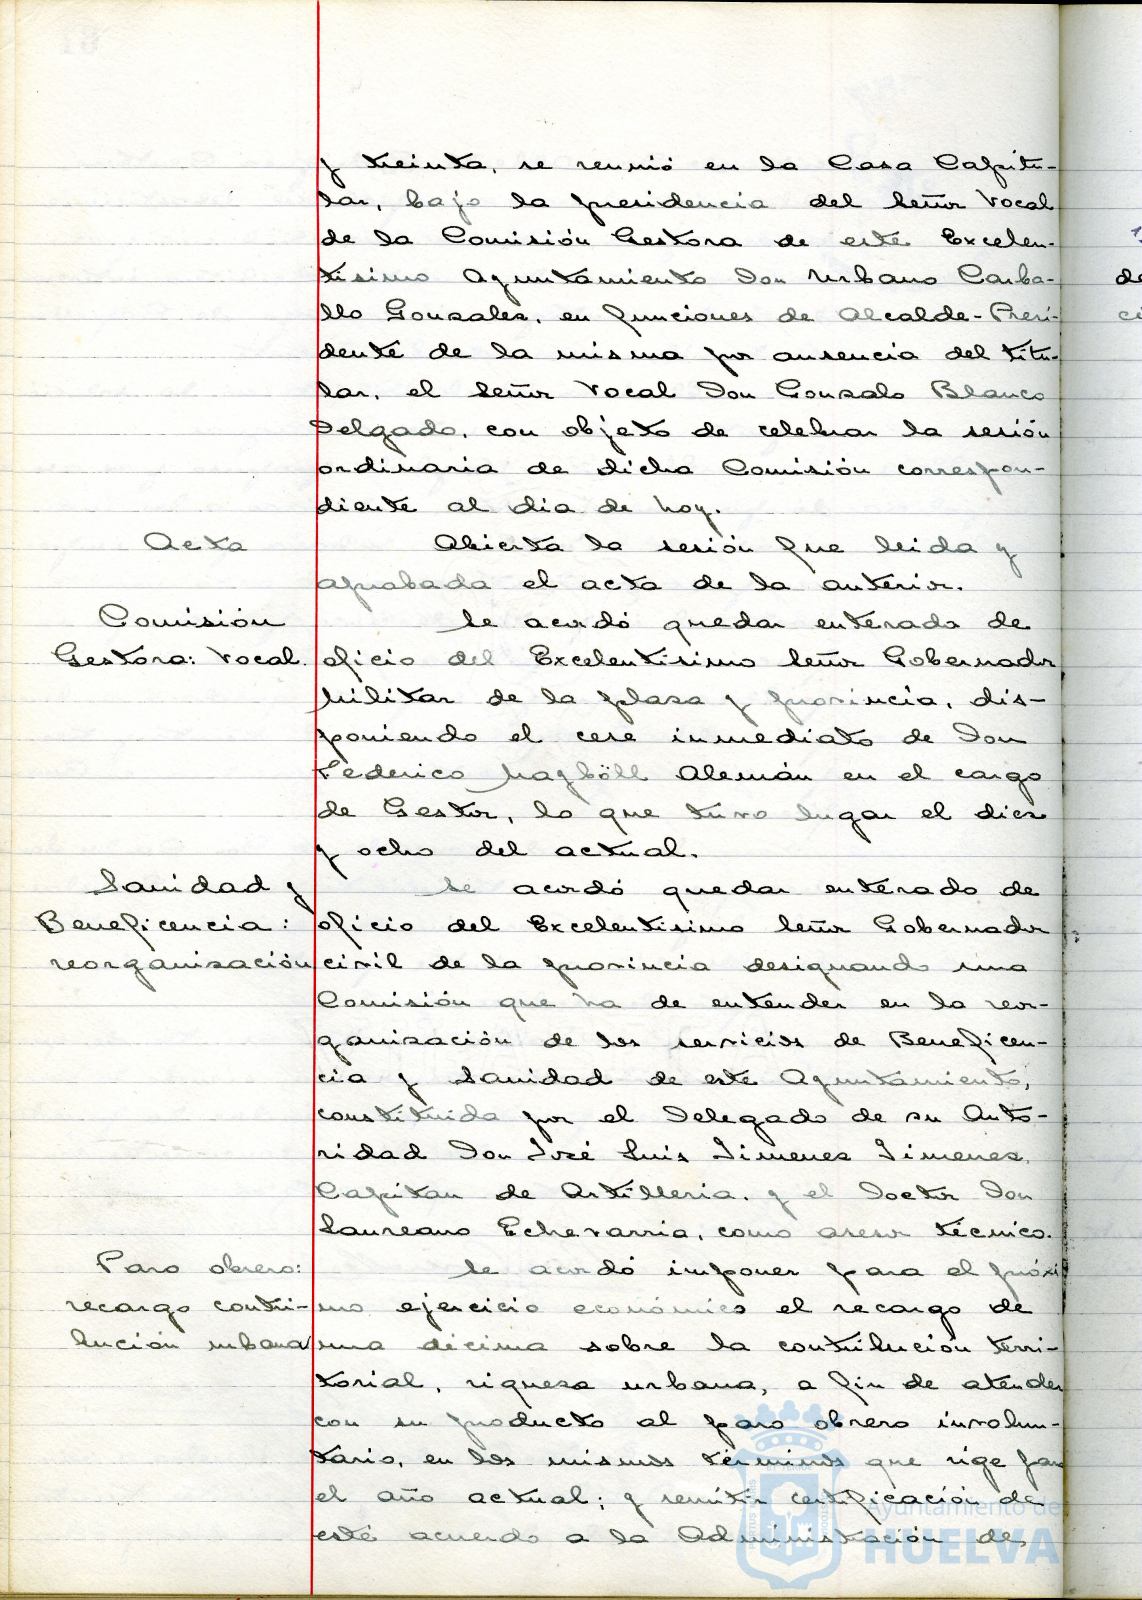 y treinta, se reunió en la Casa Capitu-
lar, bajo la presidencia del Señor Vocal
de la Comisión Gestora de este Excelen-
tísimo Ayuntamiento Don Urbano Carba-
llo Gonzalez, en funciones de Alcalde-Presi-
dente de la misma por ausencia del titu-
lar, el Señor Vocal Don Gonzalo Blanco
Delgado, con objeto de celebrar la sesión
ordinaria de dicha Comisión correspon-
diente al dia de hoy.
Acta
Abierta la sesión fue leida y
aprobada el acta de la anterior.
Comisión
Gestora: Vocal.
Se acordó quedar enterado de
oficio del Excelentísimo Señor Gobernador
Militar de la plaza y provincia, dis-
poniendo el cese inmediato de Don
Federico Alemán en el cargo
de Gestor, lo que tuvo lugar el diez
y ocho del actual.
Sanidad y
Beneficencia:
reorganización
Se acordó quedar enterado de
oficio del Excelentísimo Señor Gobernador
civil de la provincia designando una
Comisión que ha de entender en la reor-
ganización de los servicios de Beneficen-
cia y Sanidad de este Ayuntamiento,
constituida por el Delegado de su Auto-
ridad Don José Luis Jimenez Jimenez,
Capitan de Artilleria, y el Doctor Don
Laureano Echevarria, como asesor técnico.
Paro obrero:
recargo contri-
bución urbana
Se acordó imponer para el próxi
mo ejercicio económico el recargo de
una décima sobre la contribución terri-
torial, riqueza urbana, a fin de atender
con su producto al paro obrero involun-
tario, en los mismos términos que rige para
el año actual; y remitir certificación de
este acuerdo a la Administración de
Ayuntamiento de
HUELVA